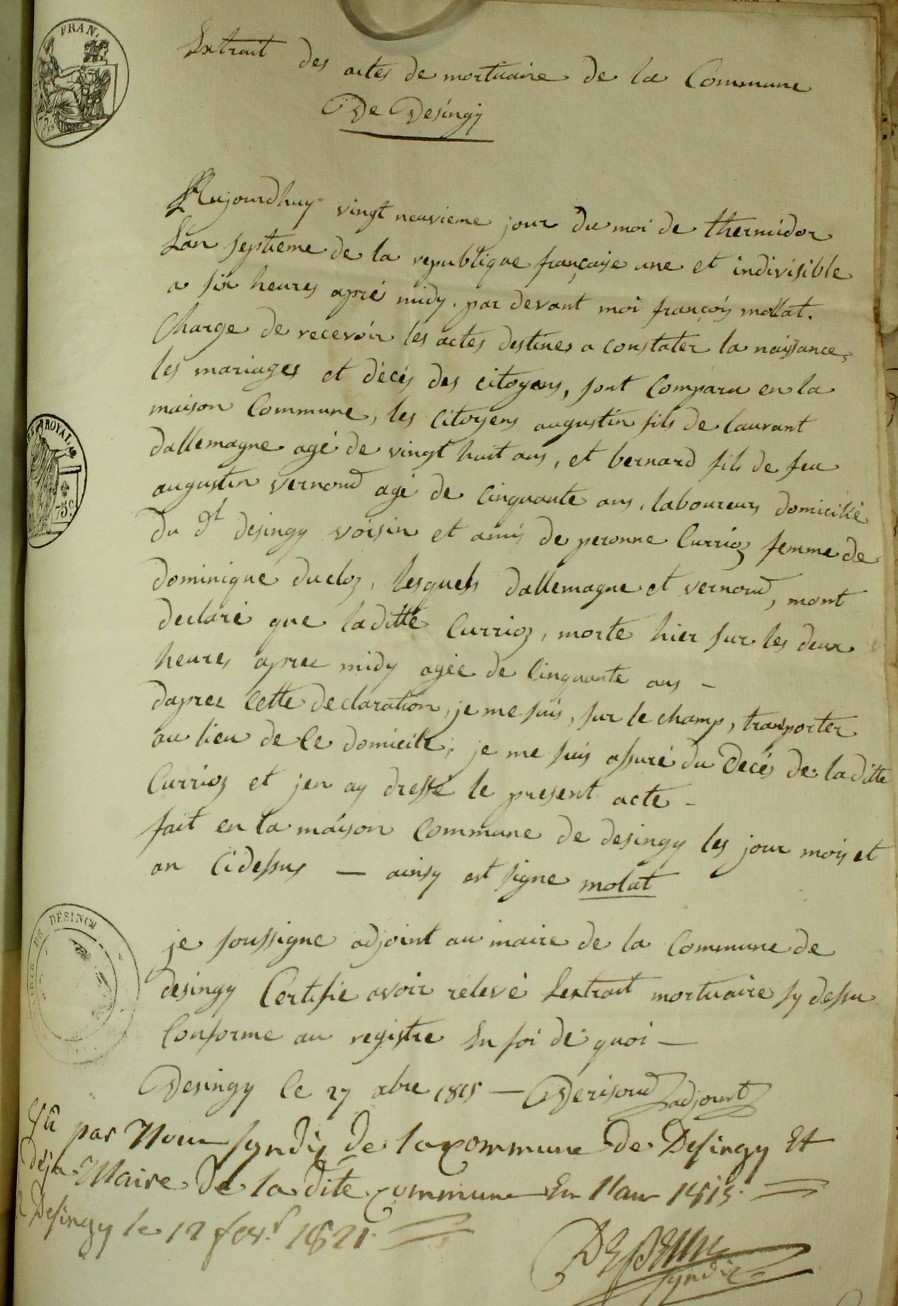 FRAN.
Extrait des actes de mortuaire de la Commune
De Desingy
Aujourdhuy vingt neuvieme jour du moi de thermidor
Lan septieme de la republique françaiſe une et indivisible
a six heures apré midy. par devant moi françois mollat.
Charge de recevoir les actes destines a constater la naissance,
les mariages et décés des citoyens, sont comparu en la
maison Commune, les citoyens augustin fils de laurant
dallemagne agé de vingt huit ans, et bernard fils de feu
augustin vernoud agé de cinquante ans, laboureurs domicilié
du dt desingy voisin et amis de peronne Currioz femme de
dominique ducloz, lesquels dallemagne et vernoud, mont
declaré que laditte Currioz, morte hier sur les deux
heures aprez midy agée de Cinquante ans —
daprez cette declaration, je me suis, sur le champ, transporter
au lieu de ce domicile, je me suis assuré du Decé de laditte
Currioz et jen ay dressé le present acte —
fait en la maison Commune de desingy les jour mois et
an Cidessus — ainsy est signe molat
ROYAL
75c
DE DÉSINGY
je soussigne adjoint au maire de la Commune de
desingy Certifie avoir relevé Lextrait mortuaire sy dessu
Conforme au registre En foi de quoi —
Desingy le 27 xbre 1815 — Derisoud adjoint
Vû par Nous syndic de la commune de Desingy Et
déja Maire De la dite commune En l'an 1815.
Desingy le 12 fevr. 1821.
syndic